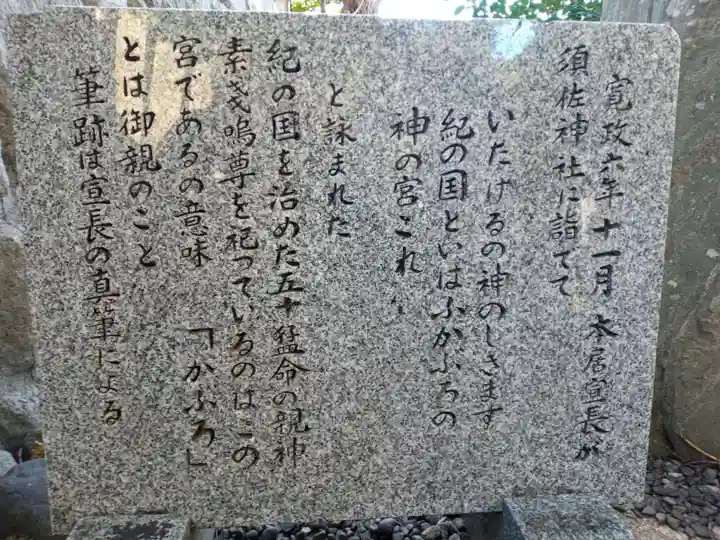 寛政六年十一月、本居宣長が
須佐神社に詣でて
いたけるの神のしきます
紀の国といはふかぶろの
神の宮これ
と詠まれた
紀の国を治めた五十猛命の親神
素戔嗚尊を祀っているのはこの
宮であるの意味 「かふろ」
とは御親のこと
筆跡は宣長の真筆による